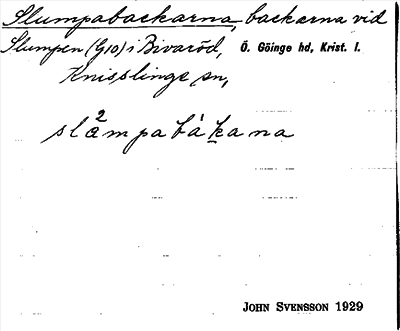 Slumpabackarna, backarna vid
Slumpen (G10) i Bivaröd, Ö. Göinge hd, Krist. l.
Knisslinge sn,
slå²mpabàkana
JOHN SVENSSON 1929